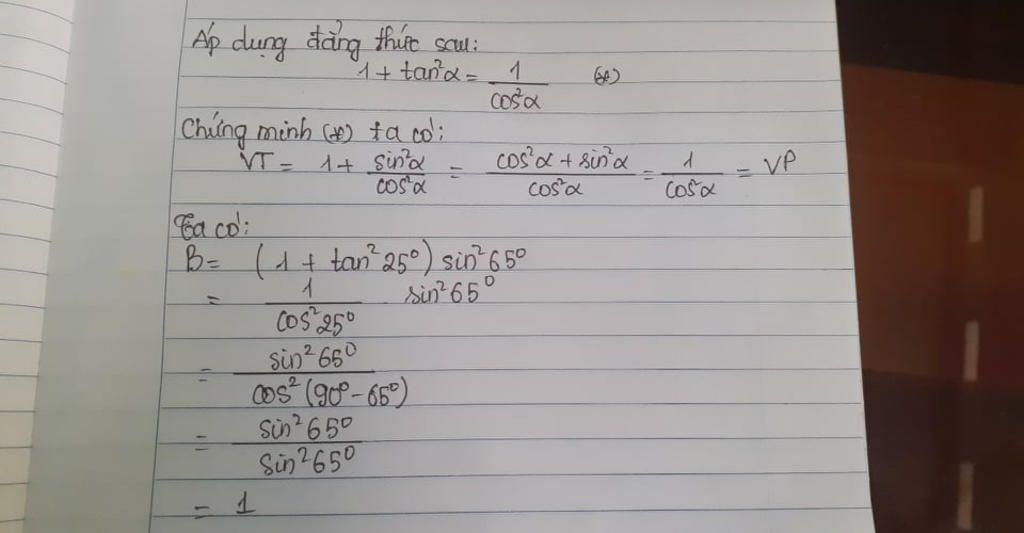 Áp dụng đẳng thức sau:
1 + tan²α = 1/cos²α (*)
Chứng minh (*) ta có:
VT = 1 + sin²α/cos²α = (cos²α + sin²α)/cos²α = 1/cos²α = VP
Ta có:
B = (1 + tan²25°) sin²65°
= 1/cos²25° sin²65°
= sin²65°/cos²(90° - 65°)
= sin²65°/sin²65°
= 1